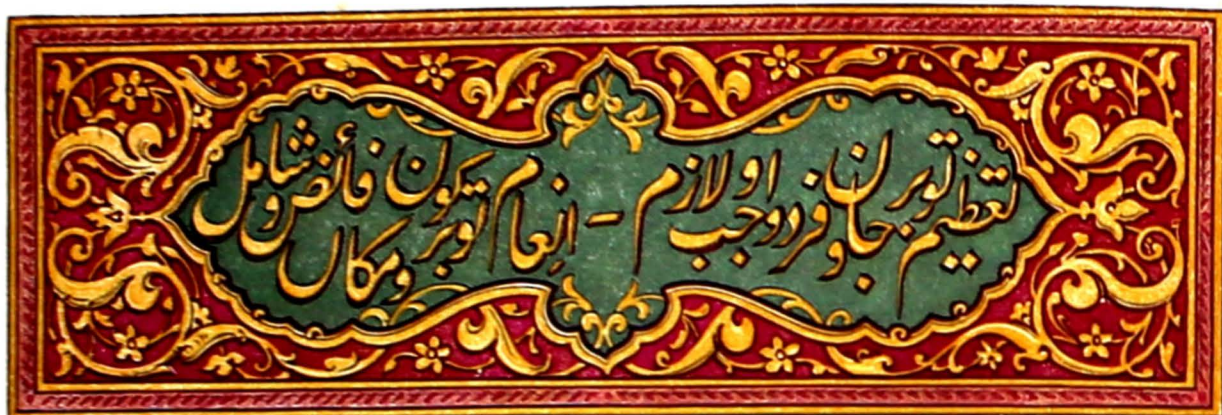 تعظیم تو بر جان و فرد واجب و لازم - انعام تو بر کون و مکاں فائض و شامل